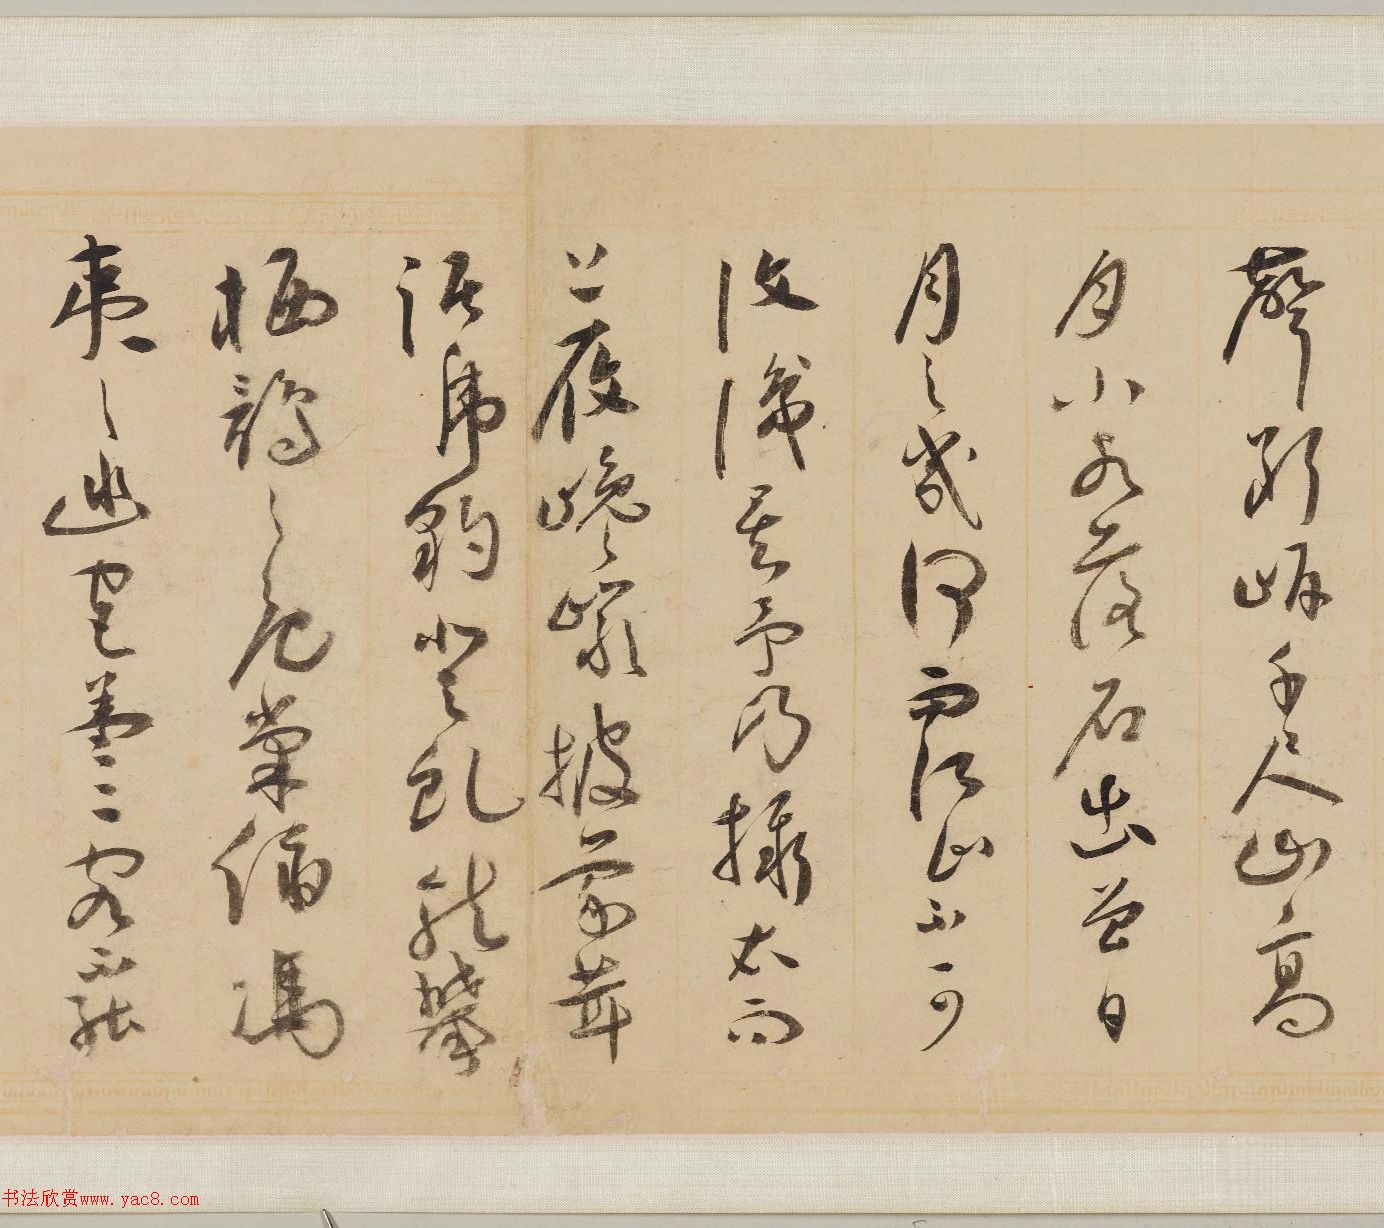 聲斷岸千尺山高
月小水落石出曾日
月之幾何而江山不可
復識矣予乃攝衣而
上履巉巖披蒙茸
踞虎豹登虬龍攀
栖鶻之危巢俯馮
夷之幽宮蓋二客不能
书法欣赏www.yac8.com